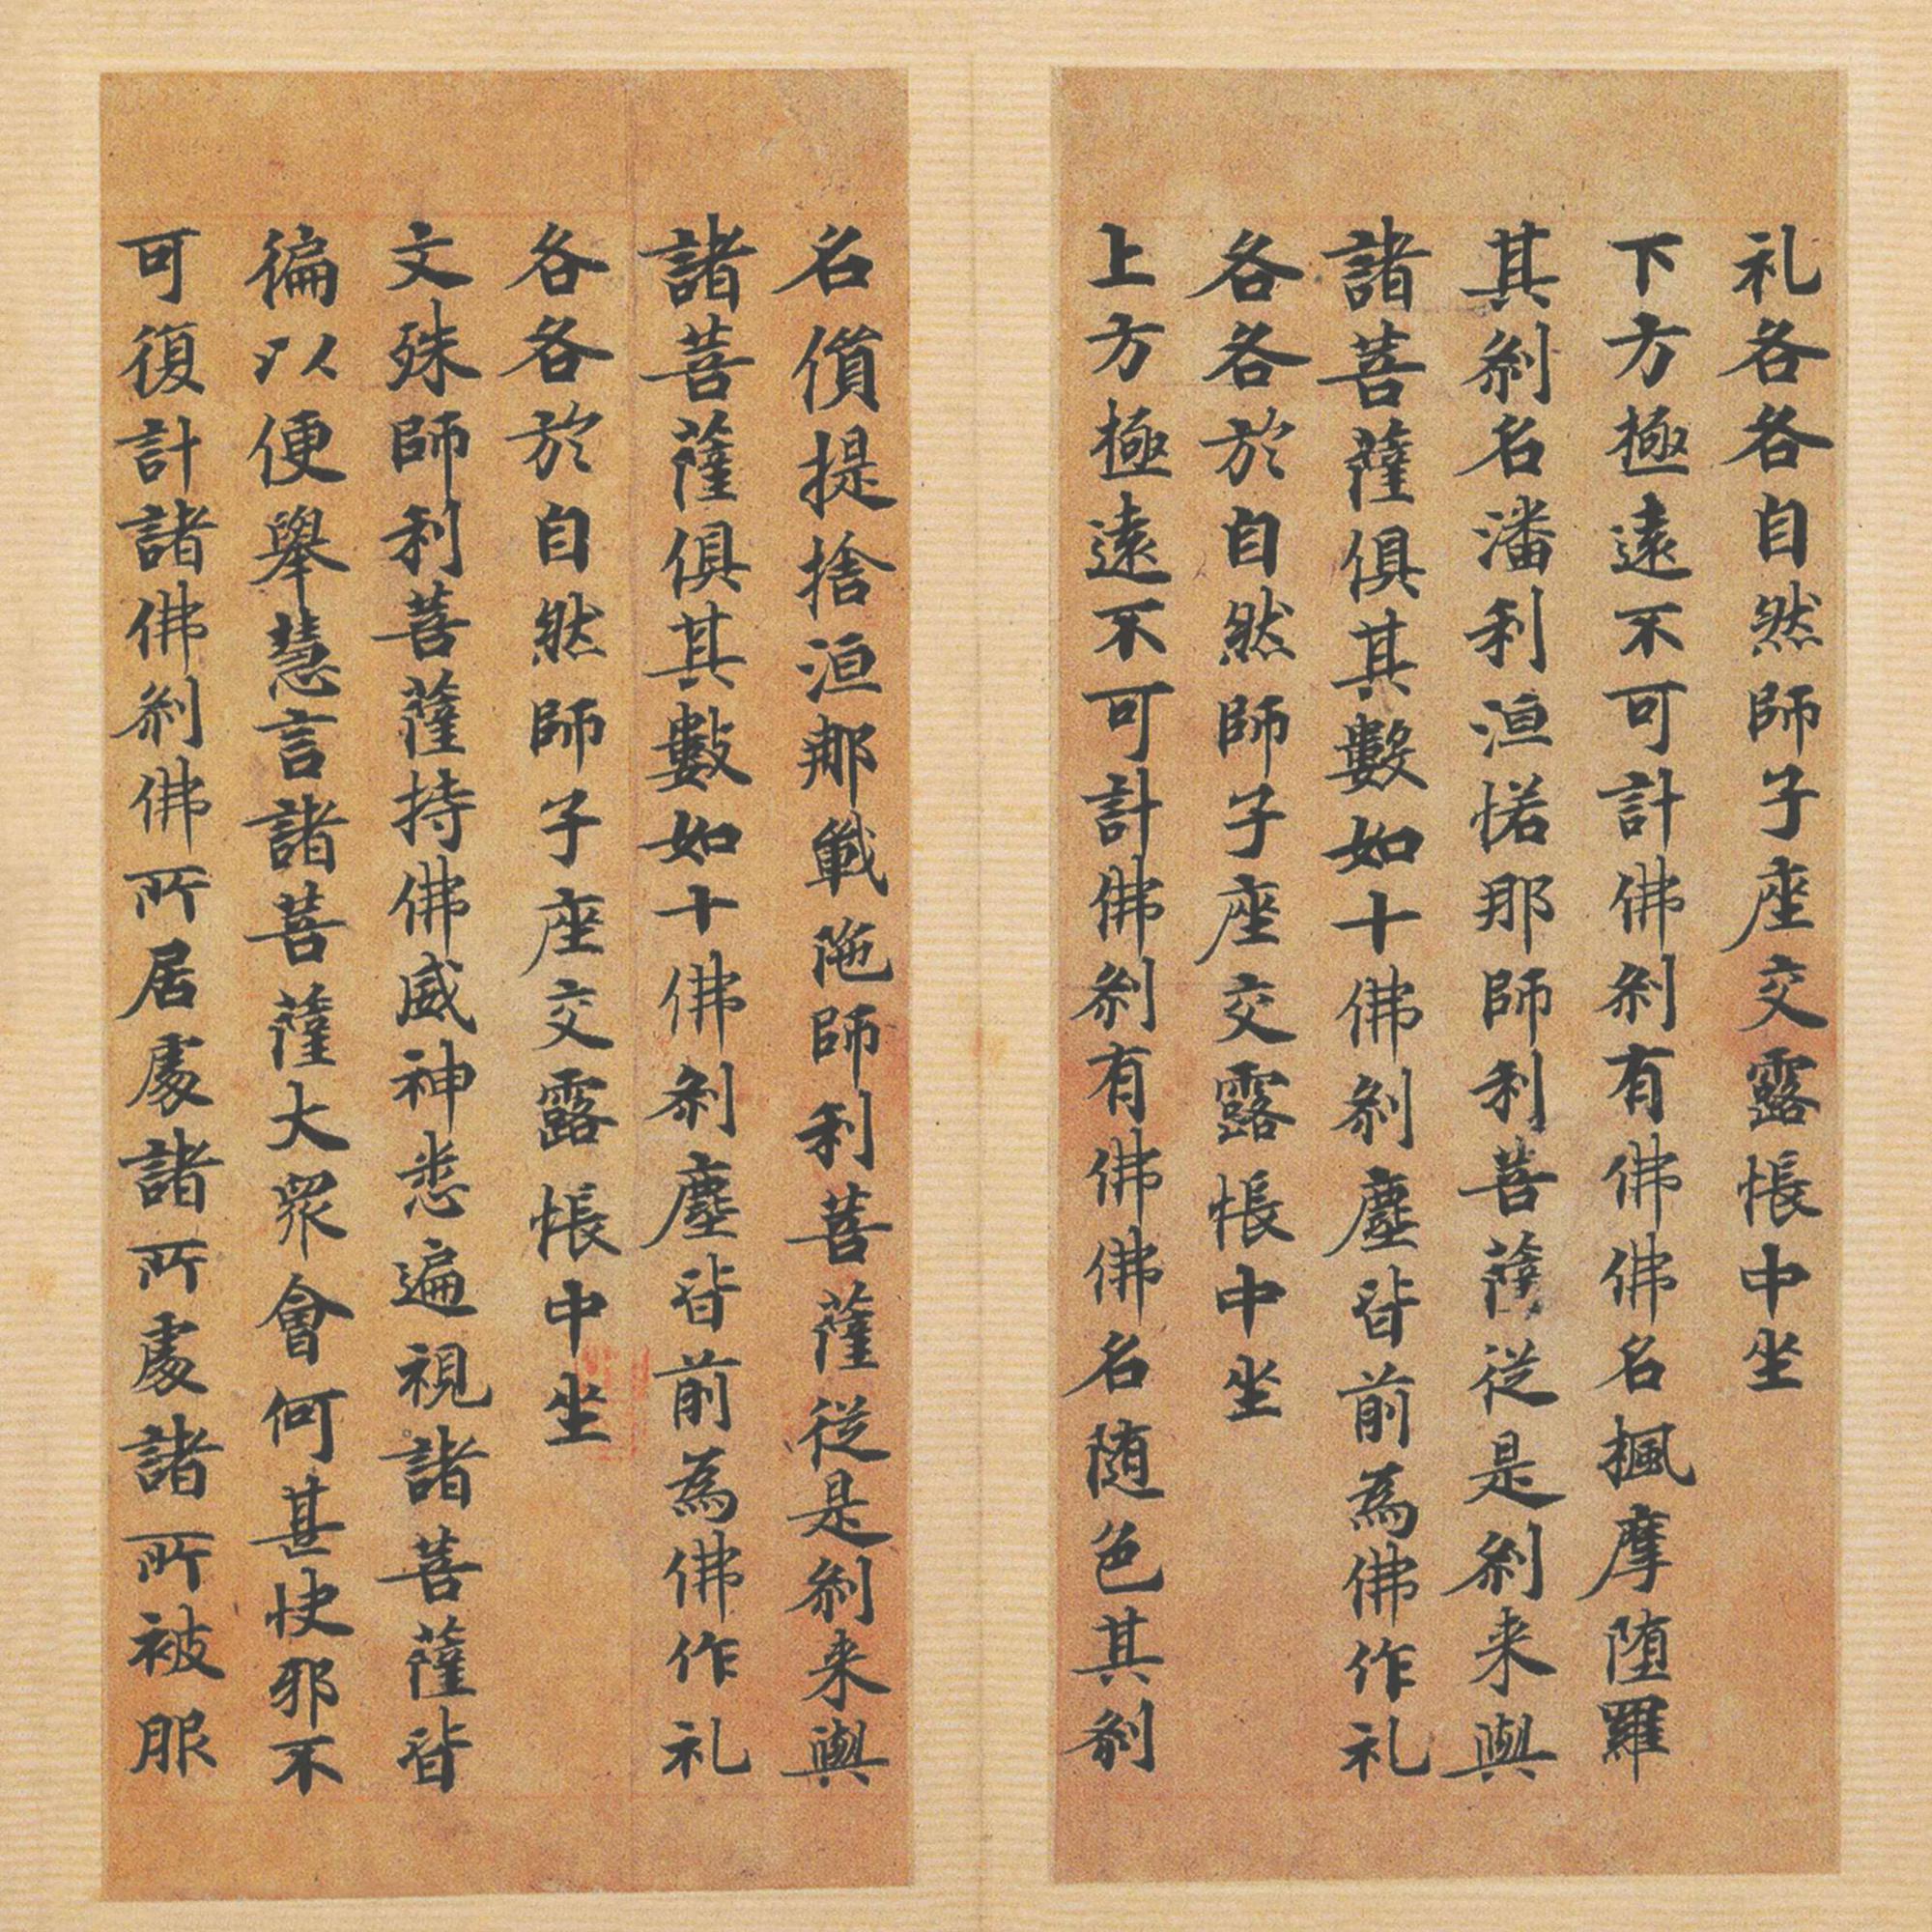 礼各各自然師子座交露帳中坐
下方極遠不可計佛刹有佛佛名楓摩堕羅
其刹名潘利洹偌那師利菩薩從是刹来與
諸菩薩俱其數如十佛刹塵皆前為佛作礼
各各於自然師子座交露帳中坐
上方極遠不可計佛刹有佛佛名随色其刹
名儨提捨洹那戰陁師利菩薩從是刹来與
諸菩薩俱其數如十佛刹塵皆前為佛作礼
各各於自然師子座交露帳中坐
文殊師利菩薩持佛威神悉遍視諸菩薩皆
徧以便舉慧言諸菩薩大衆會何甚快邪不
可復計諸佛刹佛所居處諸所處諸所被服